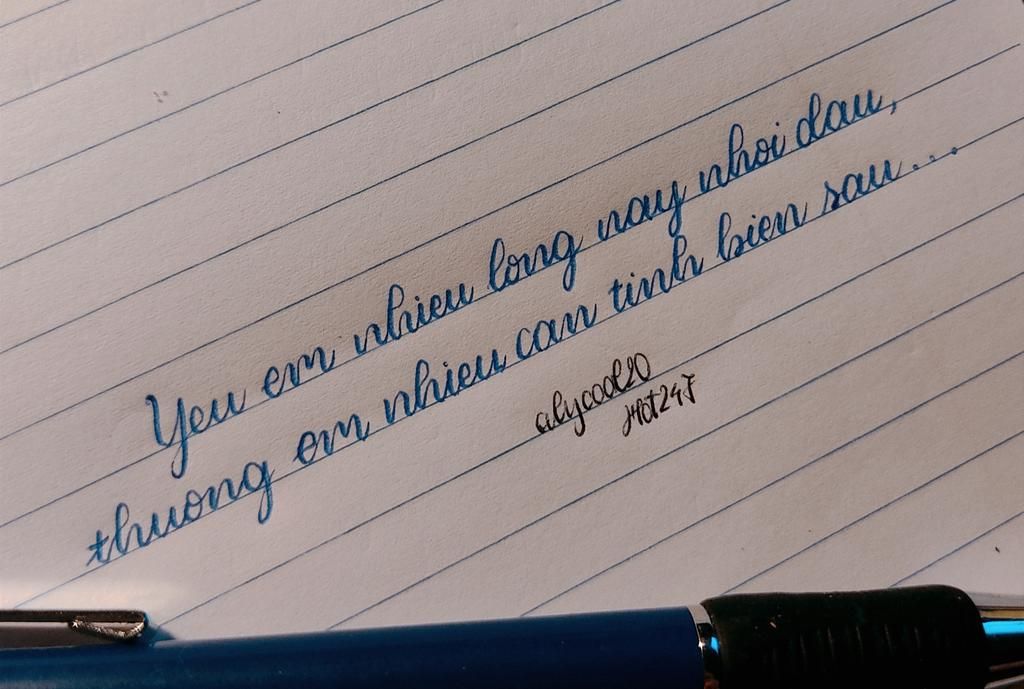 Yeu em nhieu long nay nhoi dau,
thuong em nhieu can tinh bien sau...
alycool20